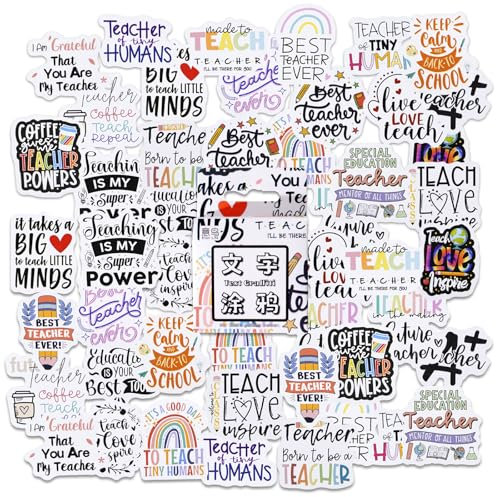 I AM Grateful
That
You Are
My Teacher
Teacher
of tiny
HUMANS
made to
TEACH
TEACHER
I'LL BE THERE FOR YOU
BEST
TEACHER
EVER
TEACHER
OF TINY
HUMAN
KEEP
CALM
AND
BACK-TO
SCHOOL
BIG
to teach LITTLE
MINDS
teacher
ever
Best
Teacher
ever
live
love
teach
A+
COFFEE
gives
TEACHER
POWERS
Teacher
Coffee
Teach
Repeat
Born to be
TEACHER
Best
Teacher
TO TEACH
TINY HUMANS
SPECIAL
EDUCATION
Teacher
MENTOR OF ALL THINGS
Teachin
IS MY
Super
TEACH
LOVE
inspire
it takes a
BIG
to teach LITTLE
MINDS
Teaching
IS MY
Super
Power
文字
Text Graffiti
涂鸦
TEACHER
I'LL BE THERE
made to
TEACH
TEACHER
I'LL BE THERE FOR YOU
Teach
Love
Inspire
BEST
TEACHER
EVER!
teacher
ever
Educatio
IS YOUR
Best Too
KEEP
CALM
AND
BACK-TO
SCHOOL
TO TEACH
TEACH
LOVE
inspire
BEST
TEACHER
EVER!
COFFEE
gives
TEACHER
POWERS
future
Teacher
A+
Teacher
Coffee
Teach
That
You Are
My Teacher
Teach
love
inspire
IT'S A GOOD DAY
TO TEACH
TINY HUMANS
Teacher
of tiny
HUMANS
Teacher
Born to be a
TEACHER
TEACHER
OF TINY
HUM
SPECIAL
EDUCATION
Teacher
MENTOR OF ALL THINGS